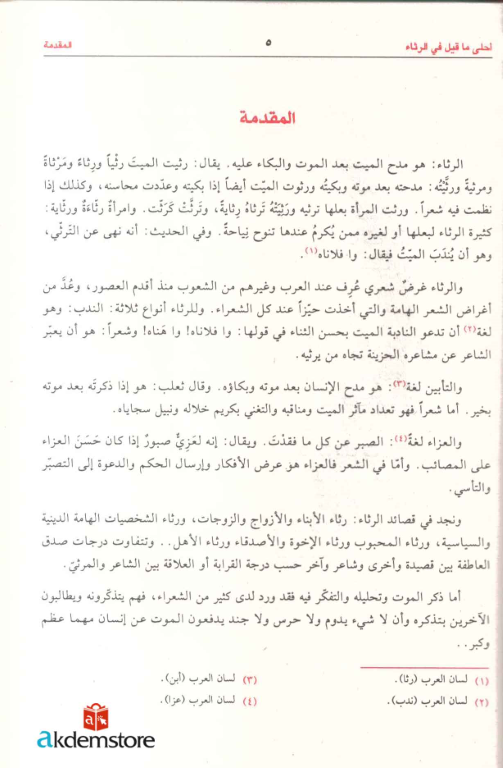 أحلى ما قيل في الرثاء
٥
المقدمة
المقدمة
الرثاء: هو مدح الميت بعد الموت والبكاء عليه. يقال: رثيت الميتَ رثْياً ورِثاءً ومَرْثاةً
ومرثيةً ورثَّيْتُه: مدحته بعد موته وبكيتُه ورثوت الميّت أيضاً إذا بكيته وعدّدت محاسنه، وكذلك إذا
نظمت فيه شعراً. ورثت المرأة بعلها ترثيه ورَثِيَتْهُ تَرثاهُ رِثايةً، وتَرثَّتْ كَرَثَّت. وامرأة رثّاءَةٌ ورثّاية:
كثيرة الرثاء لبعلها أو لغيره ممن يُكرمُ عندها تنوح نِياحةً. وفي الحديث: أنه نهى عن التَرثّي،
وهو أن يُندَبَ الميّتُ فيقال: وا فلاناه(١).
والرثاء غرضٌ شعري عُرِف عند العرب وغيرهم من الشعوب منذ أقدم العصور، وعُدَّ من
أغراض الشعر الهامة والتي أخذت حيّزاً عند كل الشعراء. وللرثاء أنواع ثلاثة: الندب: وهو
لغة(٢) أن تدعو النادبة الميت بحسن الثناء في قولها: وا فلاناه! وا هَناه! وشعراً: هو أن يعبّر
الشاعر عن مشاعره الحزينة تجاه من يرثيه.
والتأبين لغة(٣): هو مدح الإنسان بعد موته وبكاؤه. وقال ثعلب: هو إذا ذكرتَه بعد موته
بخير. أما شعراً فهو تعداد مآثر الميت ومناقبه والتغني بكريم خلاله ونبيل سجاياه.
والعزاء لغةً(٤): الصبر عن كل ما فقدْتَ. ويقال: إنه لعَزِيٌّ صبورٌ إذا كان حَسَنَ العزاء
على المصائب. وأمّا في الشعر فالعزاء هو عرض الأفكار وإرسال الحكم والدعوة إلى التصبّر
والتأسي.
ونجد في قصائد الرثاء: رثاء الأبناء والأزواج والزوجات، ورثاء الشخصيات الهامة الدينية
والسياسية، ورثاء المحبوب ورثاء الإخوة والأصدقاء ورثاء الأهل.. وتتفاوت درجات صدق
العاطفة بين قصيدة وأخرى وشاعر وآخر حسب درجة القرابة أو العلاقة بين الشاعر والمرثيّ.
أما ذكر الموت وتحليله والتفكّر فيه فقد ورد لدى كثير من الشعراء، فهم يتذكّرونه ويطالبون
الآخرين بتذكره وأن لا شيء يدوم ولا حرس ولا جند يدفعون الموت عن إنسان مهما عظم
وكبر..
(١) لسان العرب (رثا).
(٢) لسان العرب (ندب).
(٣) لسان العرب (أبن).
(٤) لسان العرب (عزا).
akdemstore